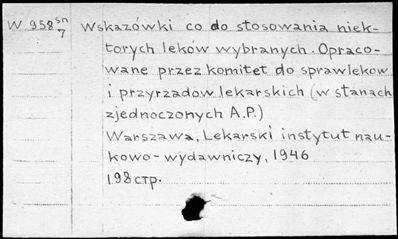 W 958 sn/7
Wskazówki co do stosowania niek-
torych leków wybranych. Opraco-
wane przez komitet do sprawlekow
i przyrządów lekarskich (w stanach
zjednoczonych A.P.)
Warszawa, Lekarski instytut nau-
kowo-wydawniczy, 1946
198 стр.